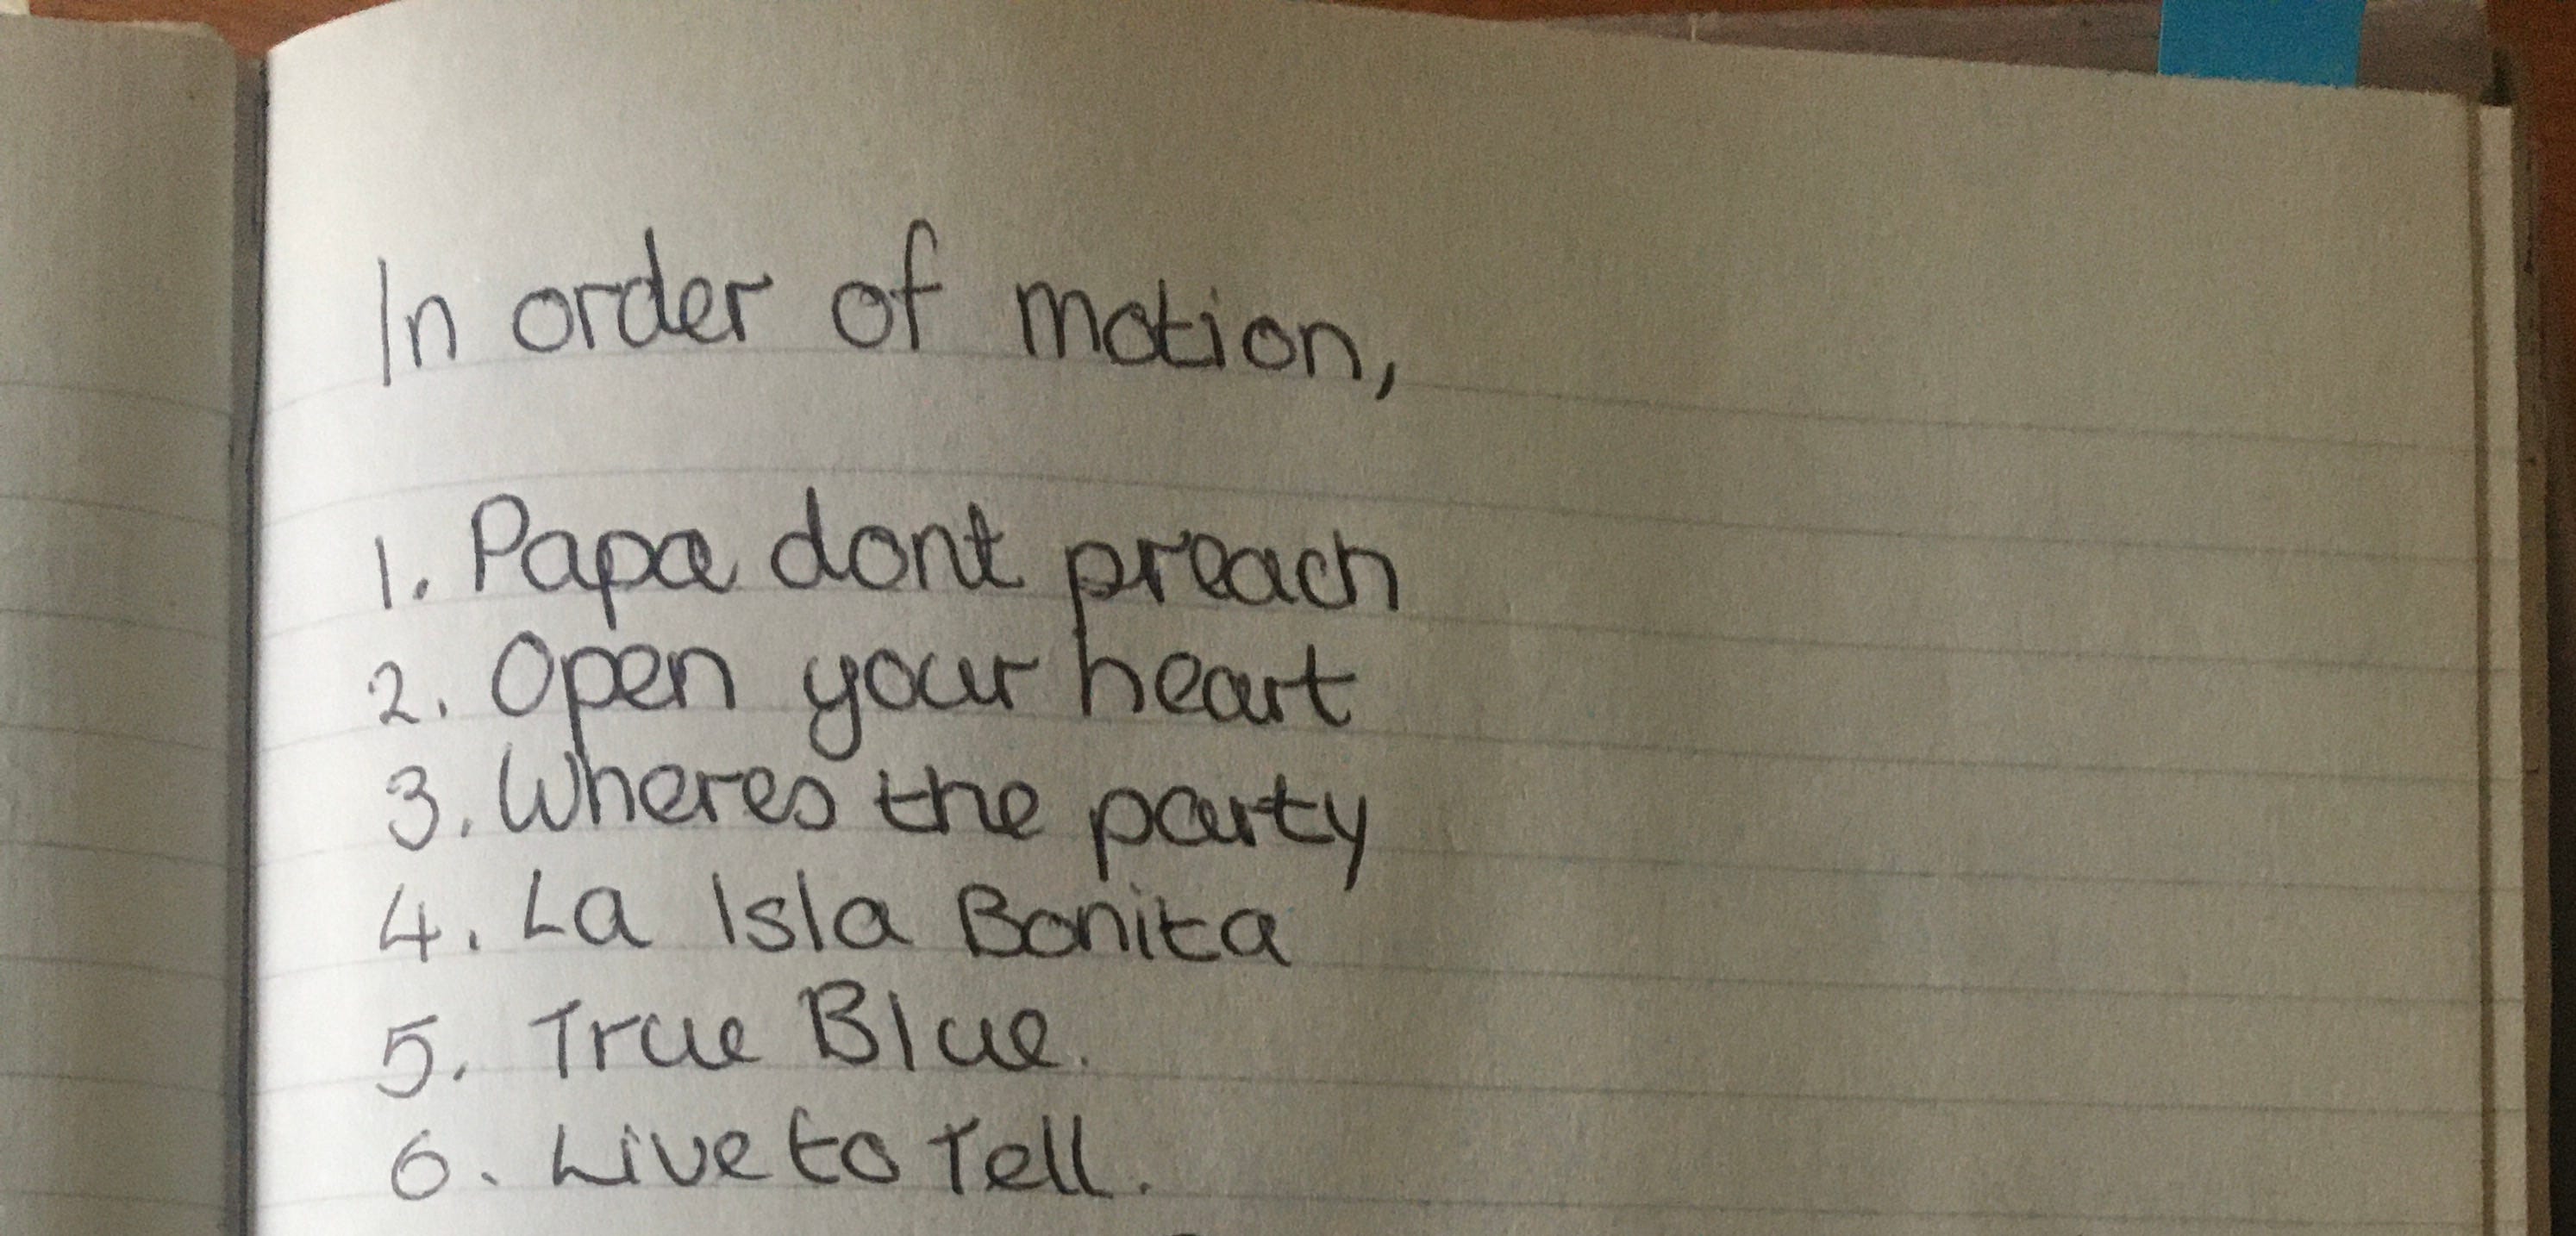 In order of motion,
1. Papa dont preach
2. Open your heart
3. Wheres the party
4. La Isla Bonita
5. True Blue.
6. Live to Tell.